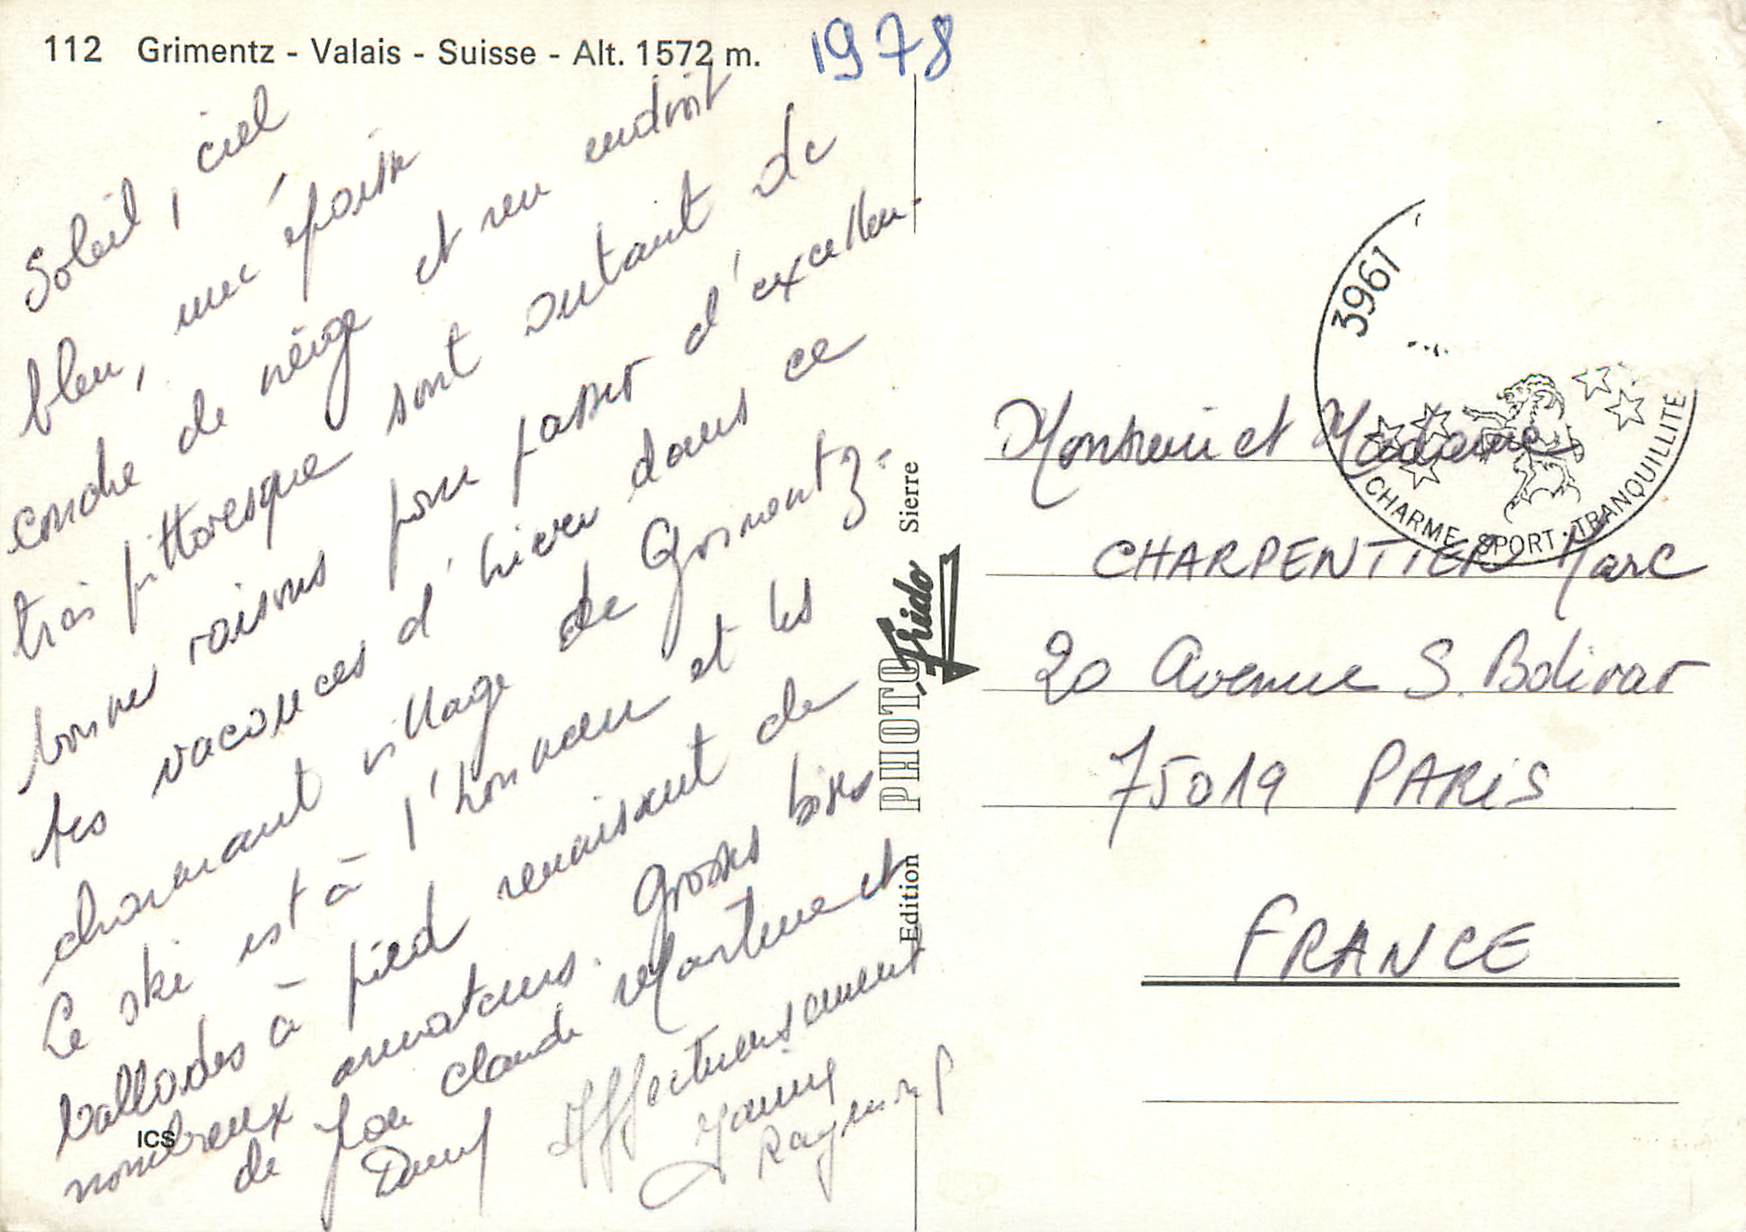 112 Grimentz - Valais - Suisse - Alt. 1572 m.
1978
Soleil, ciel
bleu, une épaisse
couche de neige et un endroit
très pittoresque sont autant de
bonnes raisons pour passer d'excellen-
tes vacances d'hiver dans ce
charmant village de Grimentz.
Le ski est à l'honneur et les
ballades à pied ravissent de
nombreux amateurs. Grosses bises
de Jean Claude Martine et
Affectueusement
Raymond
ICS
Edition PHOTO Frido Sierre
3961
CHARME · SPORT · TRANQUILLITE
Monsieur et Madame
CHARPENTIER Marc
20 Avenue S. Bolivar
75019 PARIS
FRANCE